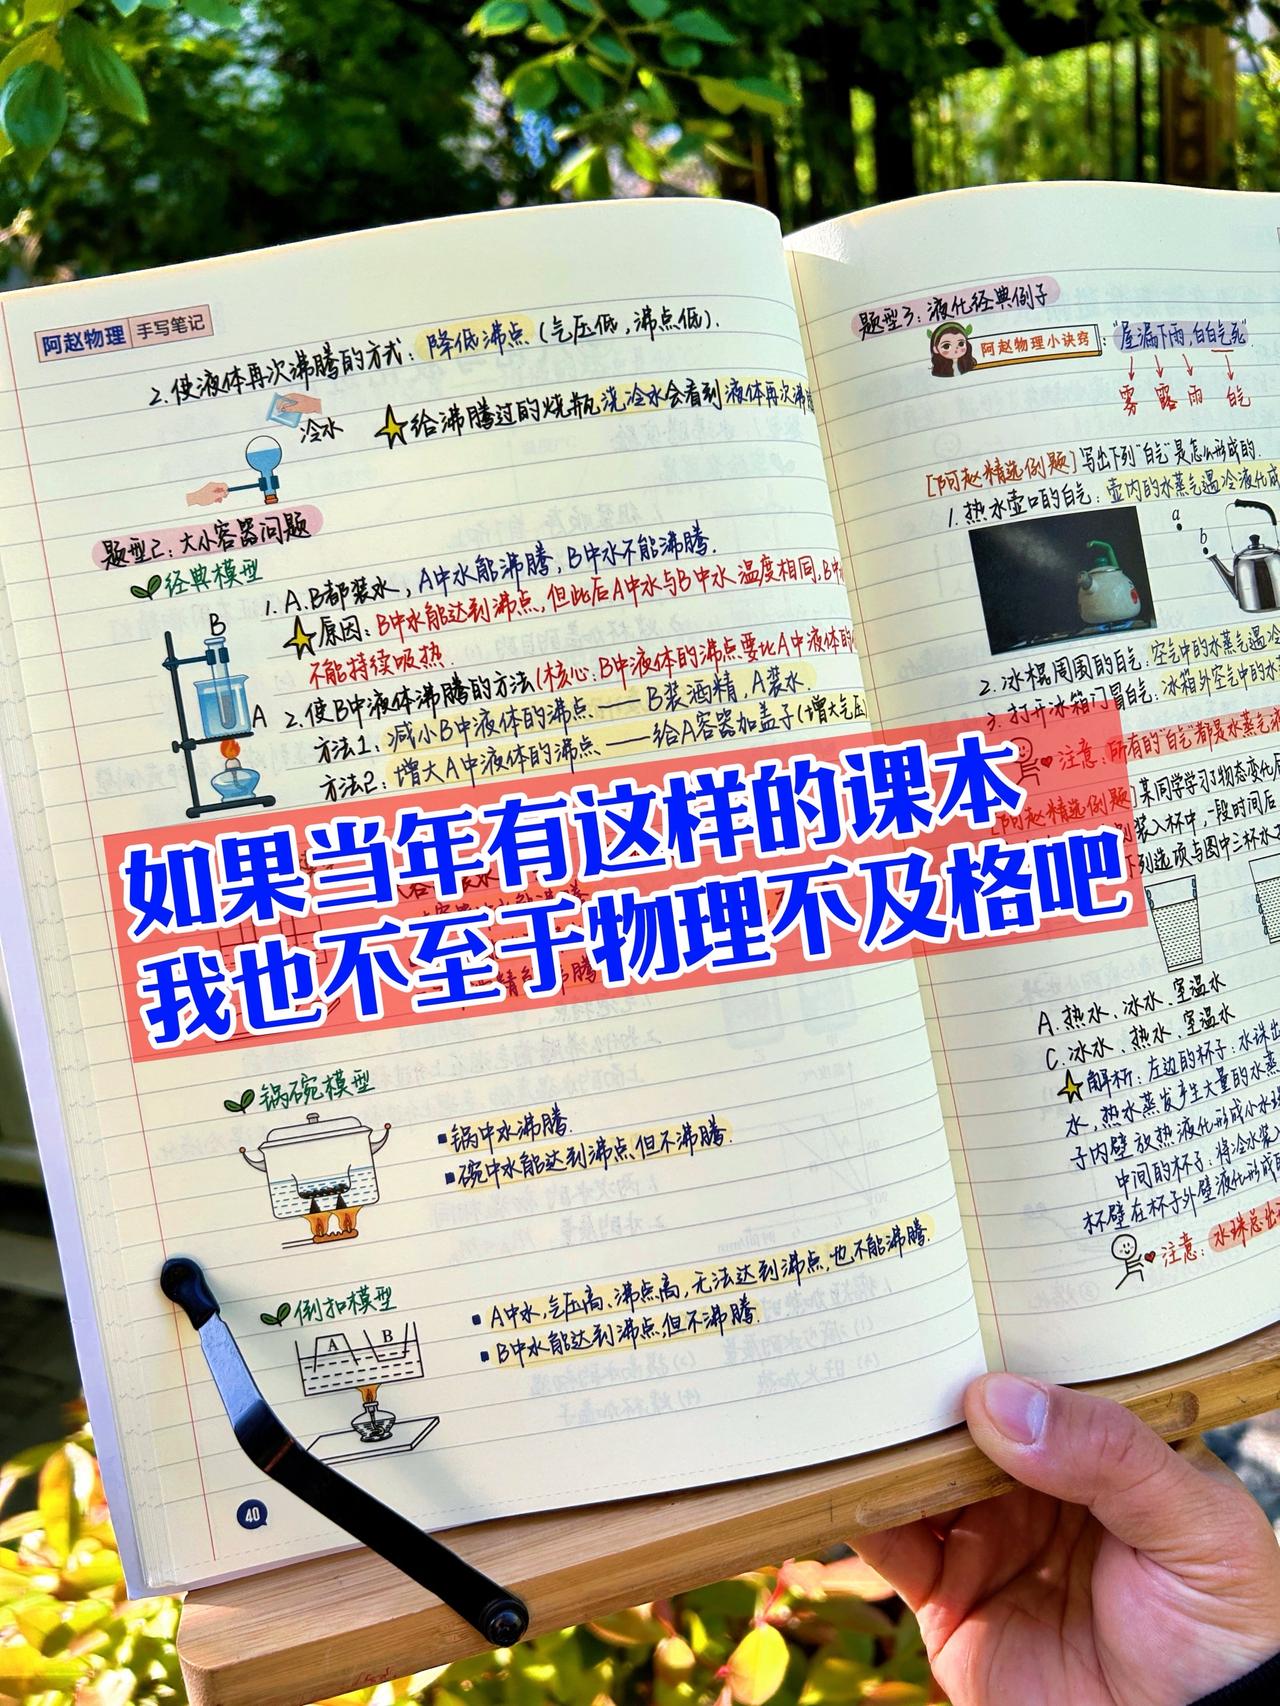 阿赵物理 手写笔记
2.使液体再次沸腾的方式：降低沸点（气压低，沸点低）.
冷水
给沸腾过的烧瓶浇冷水会看到液体再次沸
题型2：大小容器问题
经典模型
B
A
1. A.B都装水，A中水能沸腾，B中水不能沸腾.
原因：B中水能达到沸点，但此后A中水与B中水温度相同，B中
不能持续吸热.
2.使B中液体沸腾的方法（核心：B中液体的沸点要比A中液体的
方法1：减小B中液体的沸点——B装酒精，A装水.
方法2：增大A中液体的沸点——给A容器加盖子（增大气压
如果当年有这样的课本
我也不至于物理不及格吧
锅碗模型
锅中水沸腾.
碗中水能达到沸点，但不沸腾.
倒扣模型
A B
A中水，气压高、沸点高，无法达到沸点，也不能沸腾.
B中水能达到沸点，但不沸腾.
40
题型3：液化经典例子
阿赵物理小诀窍：“屋漏下雨，白白气死”
雾 露 雨 白气
[阿赵精选例题]写出下列“白气”是怎么形成的.
1.热水壶口的白气：壶内的水蒸气遇冷液化成
a
b
2.冰棍周围的白气：空气中的水蒸气遇冷
3.打开冰箱门冒白气：冰箱外空气中的水
注意：所有的“白气”都是水蒸气液
[阿赵精选例题]某同学学习了物态变化后
装入杯中，一段时间后
下列选项与图中三杯水
A.热水、冰水、室温水
C.冰水、热水、室温水
解析：左边的杯子：水珠出
水，热水蒸发产生大量的水蒸
子内壁放热液化形成小水珠
中间的杯子：将冷水装入
杯壁在杯子外壁液化形成
注意：水珠总出